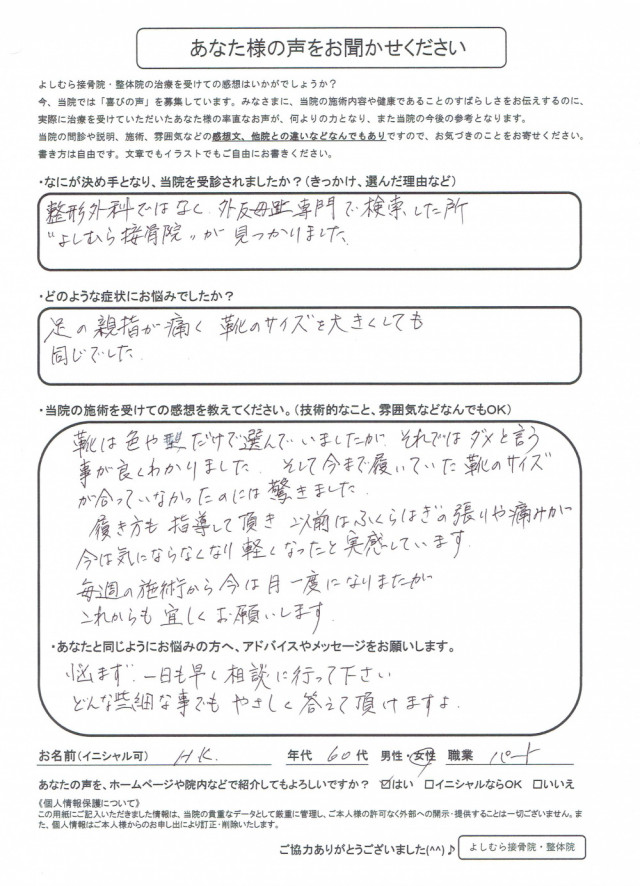 あなた様の声をお聞かせください
よしむら接骨院・整体院の治療を受けての感想はいかがでしょうか？
今、当院では「喜びの声」を募集しています。みなさまに、当院の施術内容や健康であることのすばらしさをお伝えするのに、
実際に治療を受けていただいたあなた様の率直なお声が、何よりの力となり、また当院の今後の参考となります。
当院の問診や説明、施術、雰囲気などの感想文、他院との違いなどなんでもありですので、お気づきのことをお寄せください。
書き方は自由です。文章でもイラストでもご自由にお書きください。
・なにが決め手となり、当院を受診されましたか？（きっかけ、選んだ理由など）
整形外科ではなく 外反母趾専門で検索した所
"よしむら接骨院"が見つかりました。
・どのような症状にお悩みでしたか？
足の親指が痛く 靴のサイズを大きくしても
同じでした.
・当院の施術を受けての感想を教えてください。（技術的なこと、雰囲気などなんでもOK）
靴は色や型だけで選んでいましたが それではダメと言う
事が良くわかりました. そして今まで履いていた靴のサイズ
が合っていなかったのには驚きました.
履き方も指導して頂き 以前はふくらはぎの張りや痛みが
今は気にならなくなり 軽くなったと実感しています.
毎週の施術から今は月一度になりましたが
これからも宜しくお願いします.
・あなたと同じようにお悩みの方へ、アドバイスやメッセージをお願いします。
悩まず. 一日も早く相談に行って下さい
どんな些細な事でも やさしく答えて頂けますよ.
お名前（イニシャル可） H.K. 年代 60代 男性・女性 職業 パート
あなたの声を、ホームページや院内などで紹介してもよろしいですか？ ☑はい □イニシャルならOK □いいえ
《個人情報保護について》
この用紙にご記入いただきました情報は、当院の貴重なデータとして厳重に管理し、ご本人様の許可なく外部への開示・提供することは一切ございません。ま
た、個人情報はご本人様からのお申し出により訂正・削除いたします。
ご協力ありがとうございました(^^)♪ よしむら接骨院・整体院